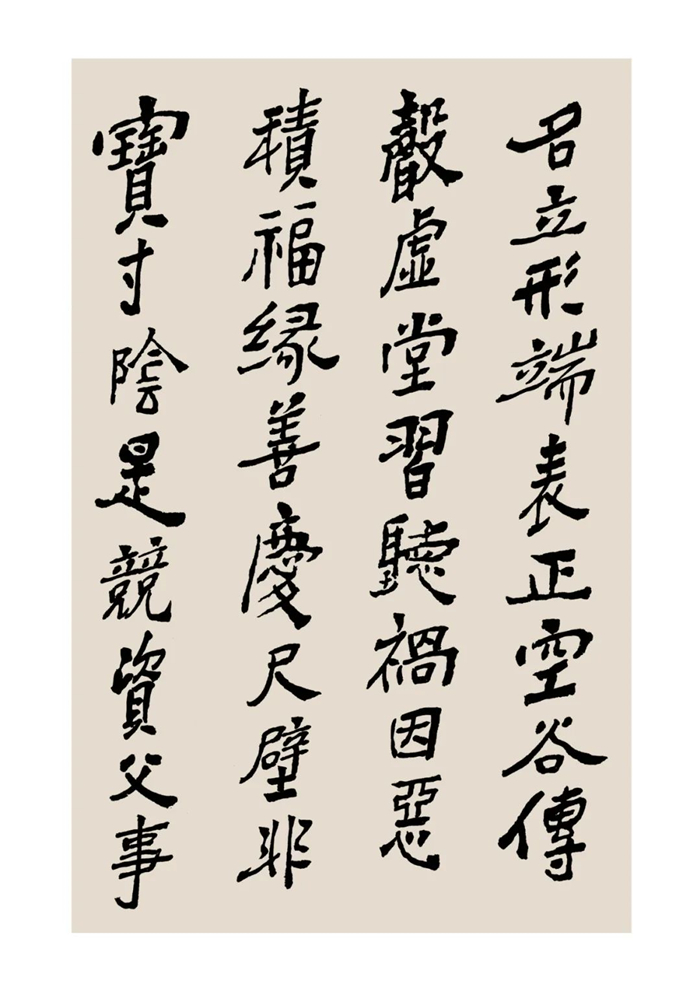 名立形端表正空谷傳
聲虛堂習聽禍因惡
積福緣善慶尺璧非
寶寸陰是競資父事